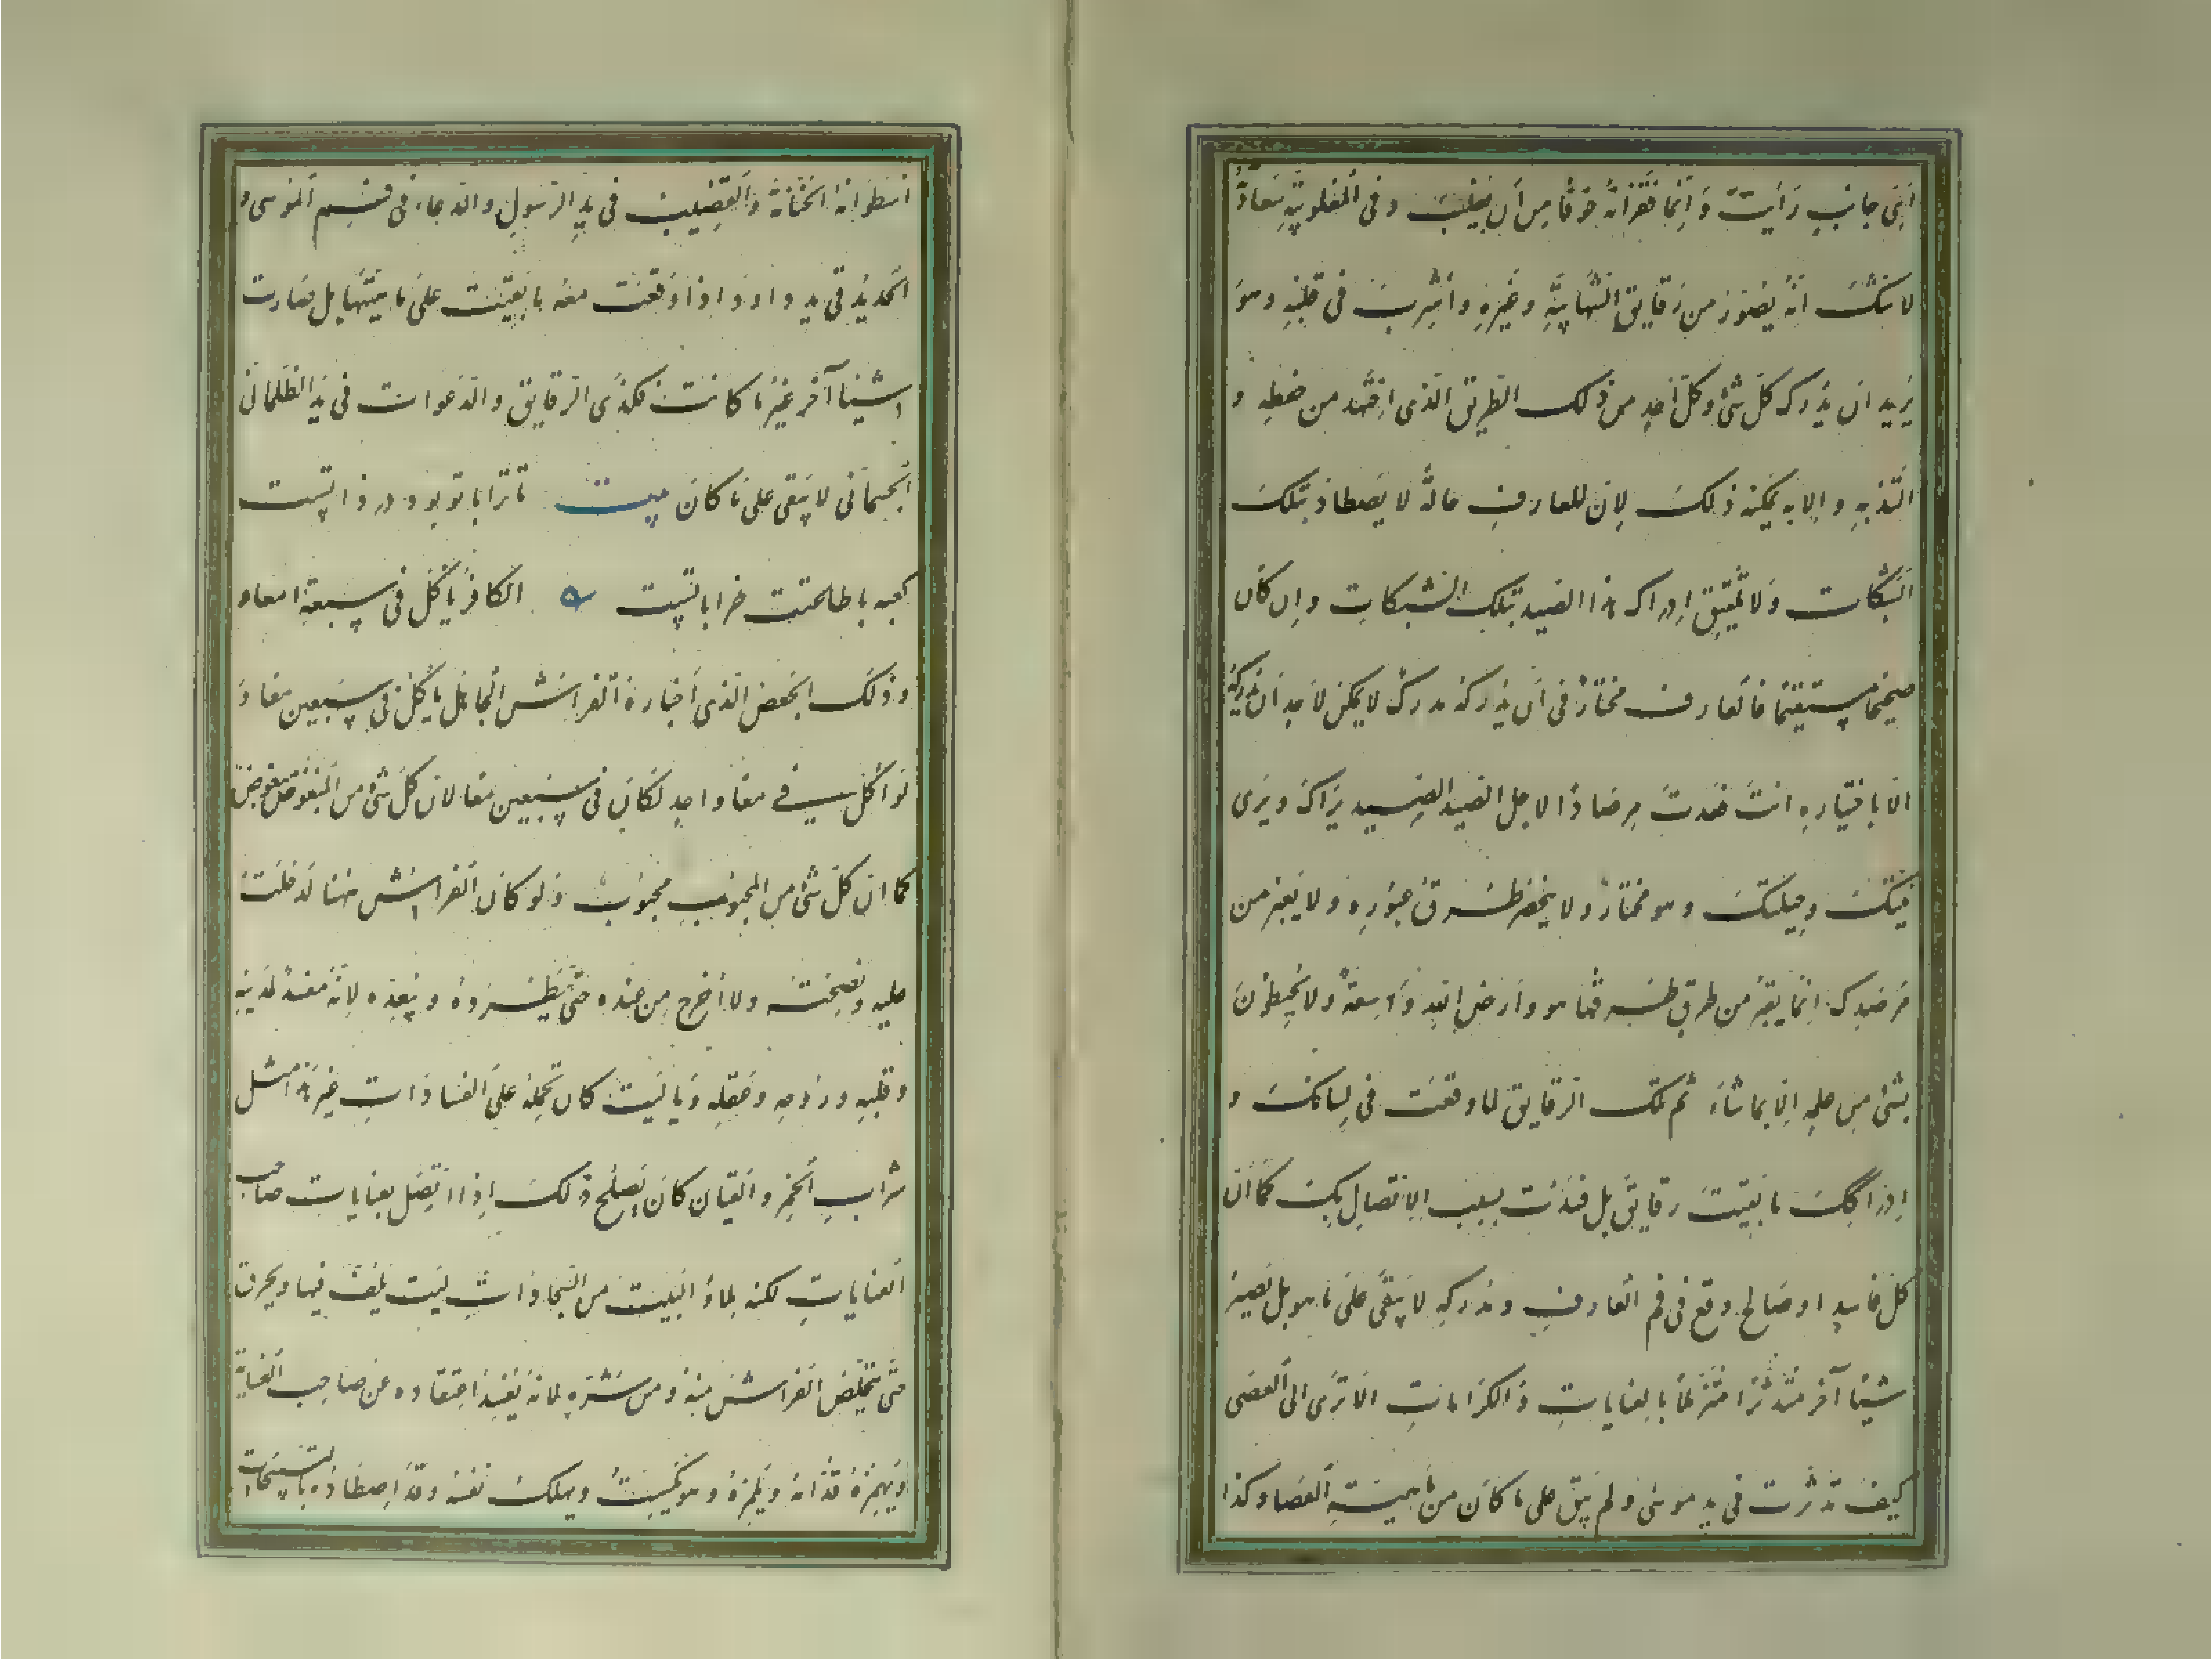 ای جانب رایت و انما تقرانه خوفا من ان یغلب و فی المغلوبیة سعادة
لا شک انه یصور من رقایق الشهابیة و غیره و اشرب فی قلبه و هو
یرید ان یدرکه کل شئ و کل احد من ذلک الطریق الذی افهمه من حفظه و
التذ به و الا به یمکنه ذلک لان للعارف حالة لا یصطاد بتلک
الشبکات و لا تلیق ادراک هذا الصید بتلک الشبکات و ان کان
صحیحا مستقیما فالعارف مختار فی ان یدرکه مدرک لا یمکن لاحد ان یدرکه
الا باختیاره انت قعدت مرصادا لاجل الصید الصید یراک و یری
حیلتک و هو مختار و لا ینحصر طرق عبوره و لا یعبر من
مرصدک انما یعبر من طرق طرقها هو و ارض الله واسعة و لا یحیطون
بشئ من علمه الا بما شاء ثم تلک الرقایق لما وقعت فی لسانک و
ادراکک ما بقیت رقایق بل فسدت بسبب الاتصال بک کما ان
کل فاسد او صالح وقع فی فم العارف و مدرکه لا یبقی علی ما هو بل یصیر
شیئا آخر متدثرا متزملا بالعنایات و الکرامات الا تری الی العصی
کیف تدثرت فی ید موسی و لم یبق علی ما کان من ماهیة العصا و کذا
اسطوانة الحنانة و القضیب فی ید الرسول و الدعاء فی فم الموسی و
الحدید فی ید داود اذا وقعت معه ما بقیت علی ماهیتها بل صارت
شیئا آخر غیر ما کانت فکذی الرقایق و الدعوات فی ید الظلمانی
الجسمانی لا یبقی علی ما کان بیت تا ترا با تو بود در ذاتست
کعبه با طاعتت خراباتست الکافر یاکل فی سبعة امعاء
و ذلک الجحش الذی اختاره الفراش الجاهل یاکل فی سبعین معاء و
لو اکل فی معاء واحد لکان فی سبعین معا لان کل شئ من المبغوض مبغوض
کما ان کل شئ من المحبوب محبوب و لو کان الفراش هنا لدخلت
علیه و نصحته و لا اخرج من عنده حتی یطرده و یبعده لانه مفسد لدینه
و قلبه و روحه و عقله و یا لیت کان یحمله علی الفسادات غیر هذا مثل
شراب الخمر و القیان کان یصلح ذلک اذا اتصل بعنایات صاحب
العنایات لکنه ملاء البیت من السجادات لیت یلف فیها و یحرق
حتی یتخلص الفراش منه و من شره لانه یفسد اعتقاده عن صاحب العنایة
و یهمزه قدامه و یلمزه و هو یسکت و یهلک نفسه و قد اصطاده بالتسبیحات